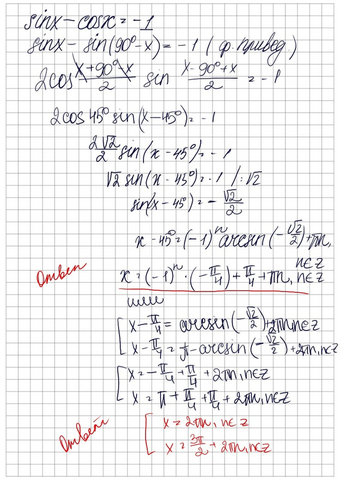 sinx - cosx = -1
sinx - sin(90° - x) = -1 (ф. привед)
2cos (x + 90° - x)/2 sin (x - 90° + x)/2 = -1
2cos 45° sin(x - 45°) = -1
2 √2/2 sin(x - 45°) = -1
√2 sin(x - 45°) = -1 / :√2
sin(x - 45°) = - √2/2
x - 45° = (-1)ⁿ arcsin(- √2/2) + πn, n∈z
Ответ x = (-1)ⁿ · (- π/4) + π/4 + πn, n∈z
или
x - π/4 = arcsin(- √2/2) + 2πn, n∈z
x - π/4 = π - arcsin(- √2/2) + 2πn, n∈z
x = - π/4 + π/4 + 2πn, n∈z
x = π + π/4 + π/4 + 2πn, n∈z
Ответ x = 2πn, n∈z
x = 3π/2 + 2πn, n∈z